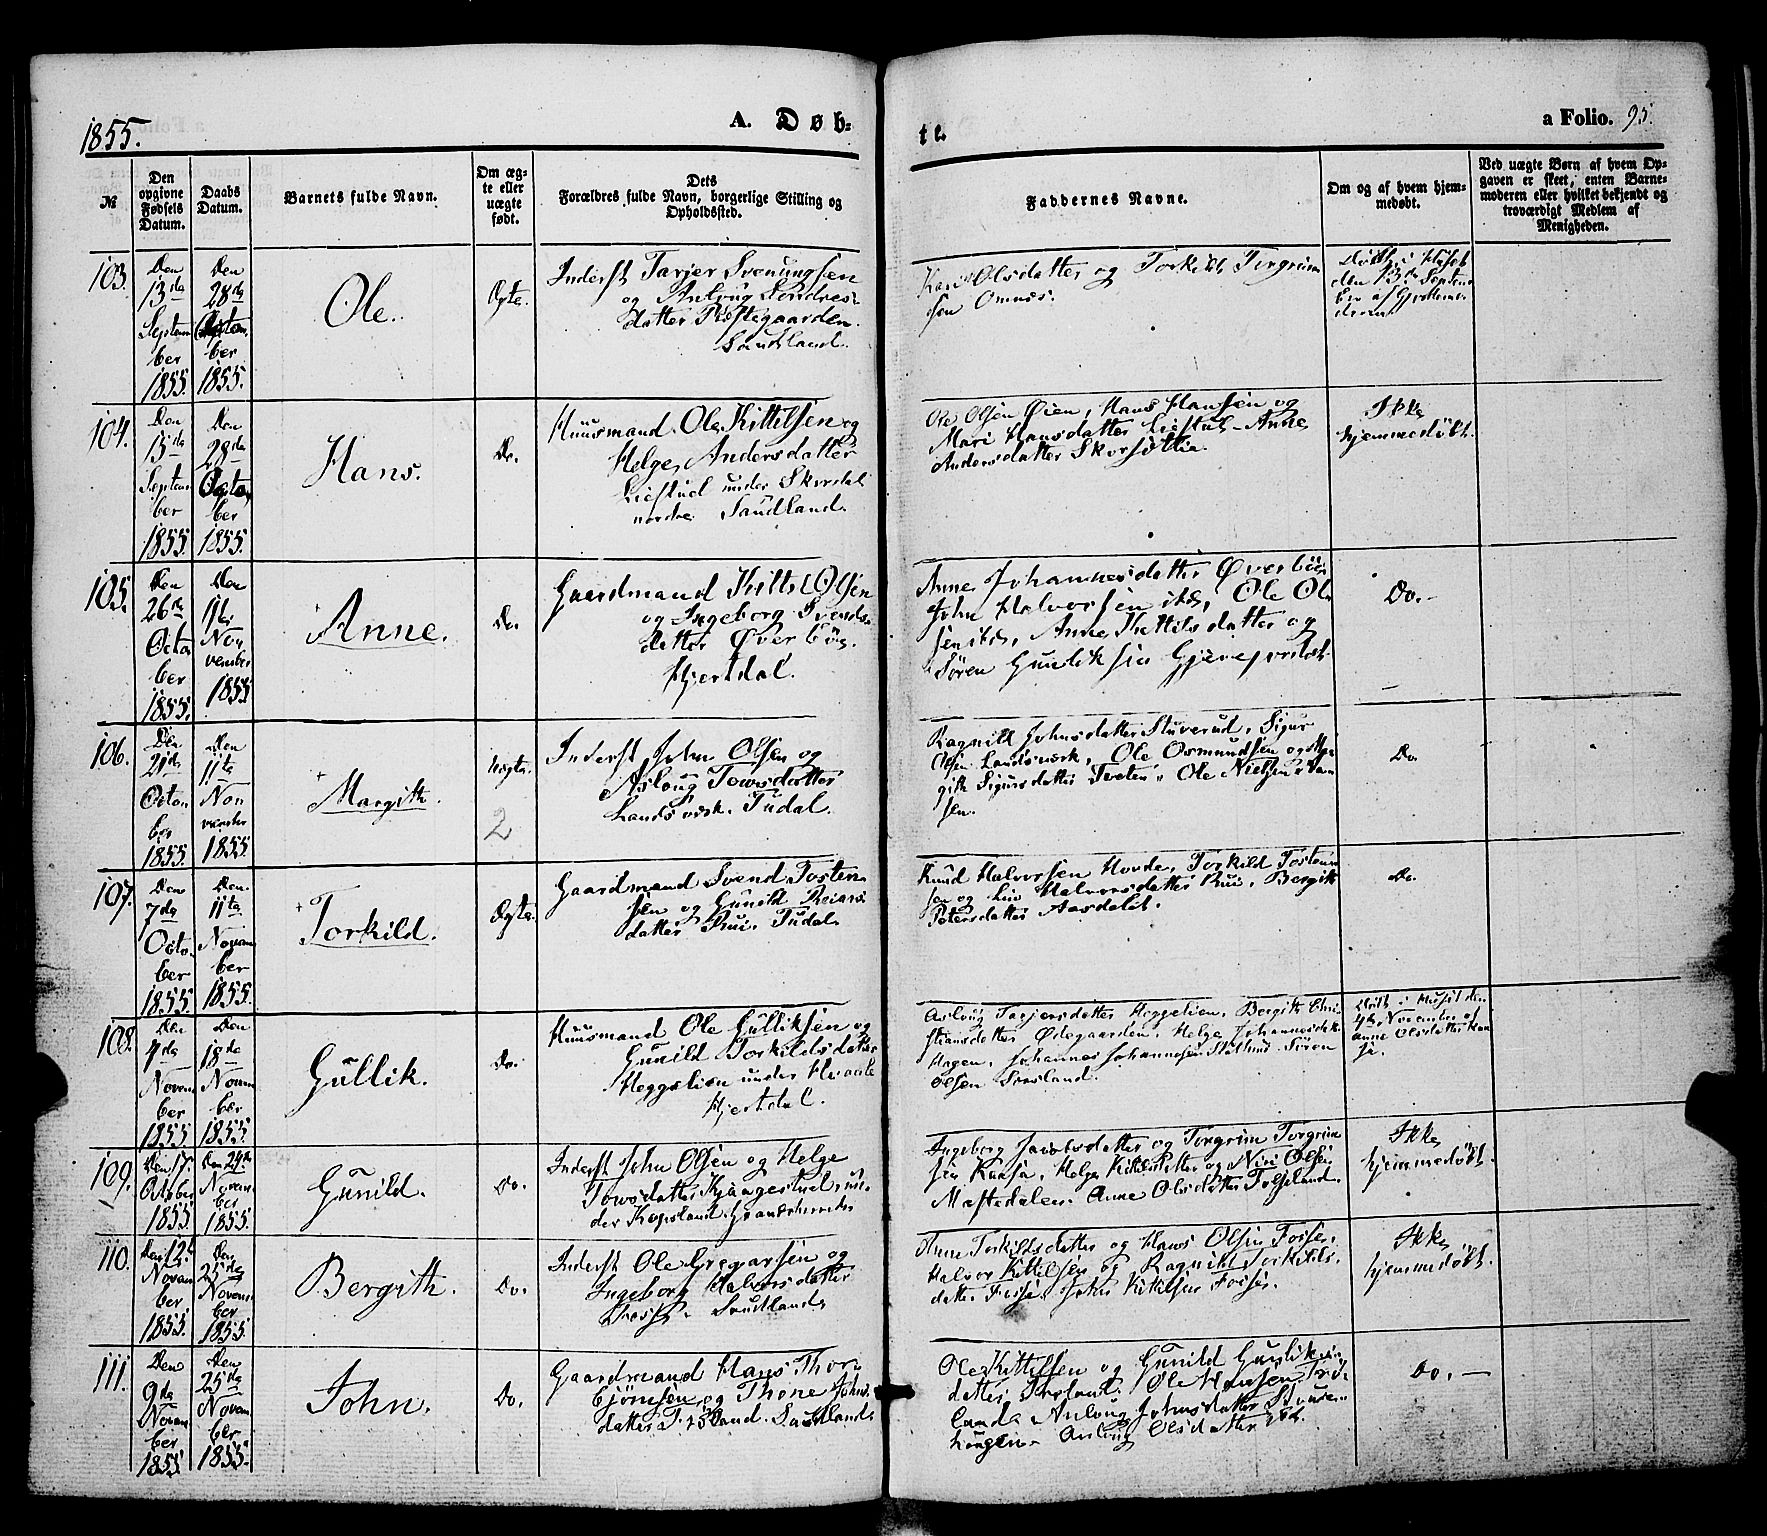 1855.
A. Døb-
te.
a Folio. 95.
№
Den opgivne Fødsels Datum.
Daabs Datum.
Barnets fulde Navn.
Om ægte eller uægte født.
Dets Forældres fulde Navn, borgerlige Stilling og Opholdssted.
Faddernes Navne.
Om og af hvem hjemmedøbt.
Ved uægte Børn af hvem Opgaven er skeet, enten Barnemoderen eller hvilket bekjendt og troværdigt Medlem af Menigheden.
103.
Den
13da
Septem
ber
1855.
Den
28da
Octo
ber
1855.
Ole.
Ægte.
Inderst Tarjer Svenungsen
og Anlaug Sondres-
datter Præstegaarden.
Saudland.
Kari Olsdatter og Torkild Torgrim
sen Omnæs.
Døbt i Huset
den 13da Septem
ber af
104.
Den
13da
Septem
ber
1855.
Den
28da
Octo
ber
1855.
Hans.
Do.
Huusmand Ole Kittilsen og
Helge Andersdatter
Liestud under Skardal
nordre Saudland.
Ole Olsen Øien, Hans Hansen og
Mari Hansdatter Liestul - Anne
Andersdatter
Ikke
hjemmedøbt.
105.
Den
26da
Octo
ber
1855.
Den
11te
Nov
vember
1855
Anne.
Do.
Gaardmand Kittil Olsen
og Ingeborg Svends-
datter Øverbøe.
Hjertdal.
Anne Johannesdatter Øverbøe
John Halvorsen ibd, Ole Ol
sen ibd, Anne Kettilsdatter og
Søren Gunliksen
Do. -
106.
Den
21da
Octo
ber
1855.
Den
11ta
Nov
vember
1855.
Margith.
Uægte.
2
Inderst John Olsen og
Aslaug Tovsdatter
Landsværk. Tudal.
Ragnild Johnsdatter Stuverud, Sigur
Olsen Landsværk, Ole Osmundsen og Mar
gith Sigursdatter Tveten, Ole Nielsen
sen.
Do.
107.
Den
7da
Octo
ber
1855.
Den
11ta
Novem
ber
1855.
Torkild.
Ægte.
Gaardmand Svend Tosten
sen og Gunild Reiars
datter Rui. Tudal.
Knud Halvorsen Hovde, Torkild Tosten
sen og Liv Halvorsdatter Rui, Bergith
Petersdatter Aasdalet.
Do.
108.
Den
4da
Novem
ber
1855
Den
18de
Novem
ber
1855.
Gullik.
Do.
Huusmand Ole Gulliksen og
Gunild Torkildsdatter
Heggelien under
Hjertdal.
Aslaug Tarjersdatter Heggelien. Bergith Chri
stiansdatter Ødegaarden. Helge Johannesdatter
Hagen, Johannes Johannesen Søren
Olsen
Døbt i Huset den
4da November af
Anne Olsdatter
109.
Den 17.
October
1855
Den 24da
Novem
ber
1855.
Gunild.
Do.
Inderst John Olsen og Helge
Tovsdatter un
der
Ingeborg Jacobsdatter og Torgrim Torgrim
sen Kaasa, Helge Kittilsdatter og Niri Olsen
Anne Olsdatter
Ikke
hjemmedøbt.
110.
Den 12.
Novem
ber
1855.
Den
25da
Novem
ber
1855.
Bergith.
Do.
Inderst Ole Gregarsen og
Ingeborg Halvorsdatter
Saudland
Anne Torkildsdatter og Hans Olsen Fosse,
Halvor Kittilsen og Ragnild Torkilds-
datter Fosse, John Kittilsen Fosse.
Ikke
hjemmedøbt.
111.
Den
9da
Novem
ber
1855
Den
25da
Novem
ber
1855.
John.
Do.
Gaardmand Hans Thor-
bjørnsen og Thone Johns
datter Saudland
Ole Kittilsen og Gunild Gunliks
datter Ole Hansen
Anlaug Johnsdatter
haugen. Anlaug Olsdatter ibd.
Do. -